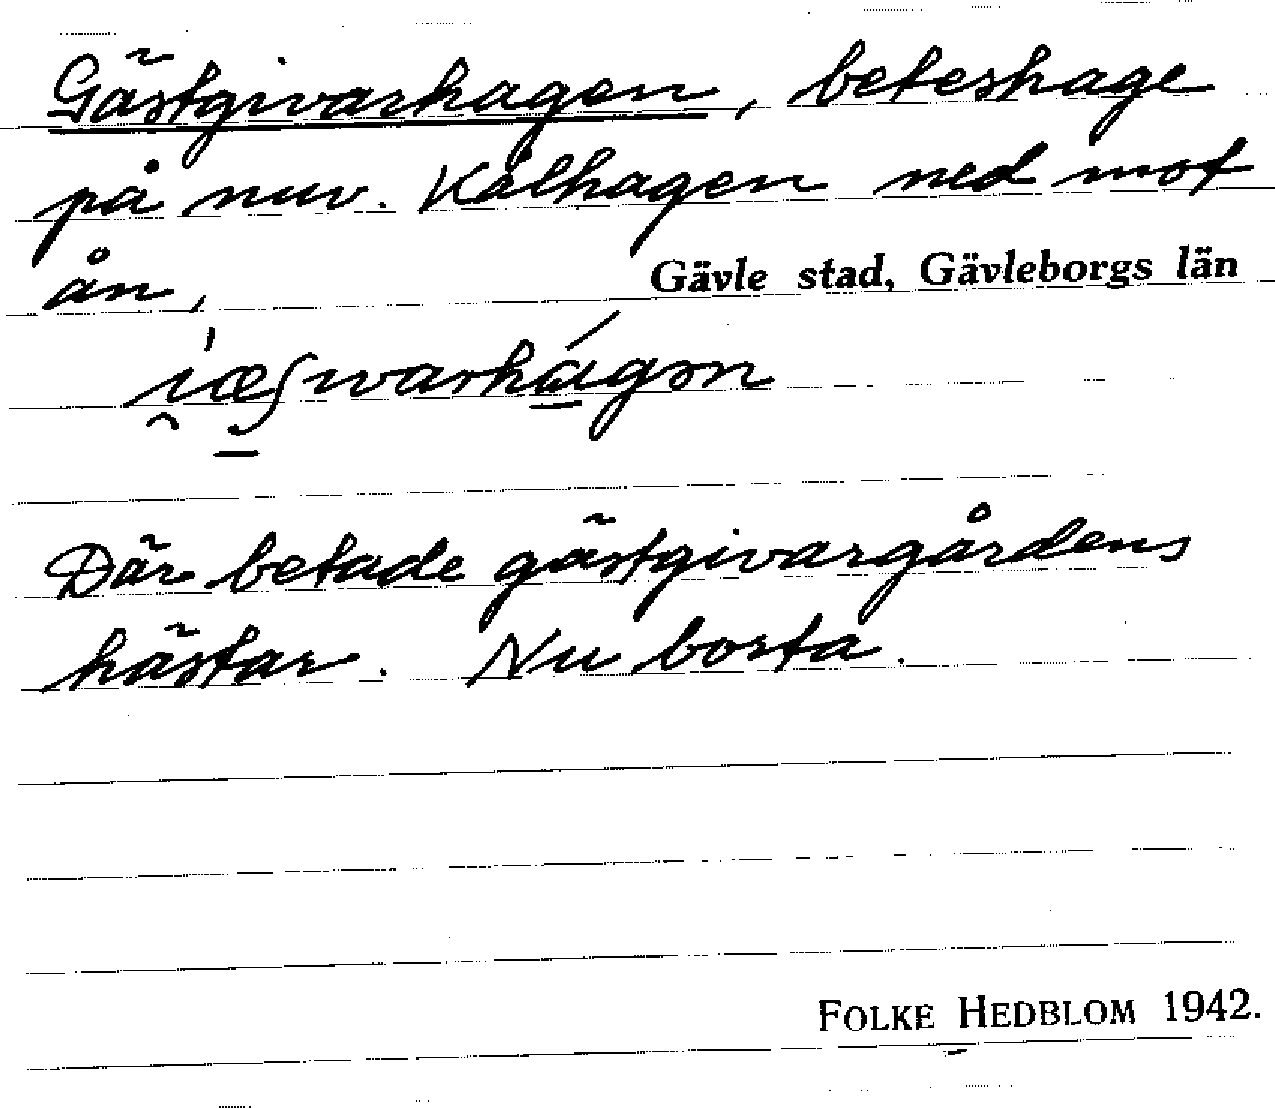 Gästgivarhagen, beteshage
på nuv. Kålhagen ned mot
ån,
Gävle stad, Gävleborgs län
Där betade gästgivargårdens
hästar. Nu borta.
FOLKE HEDBLOM 1942.